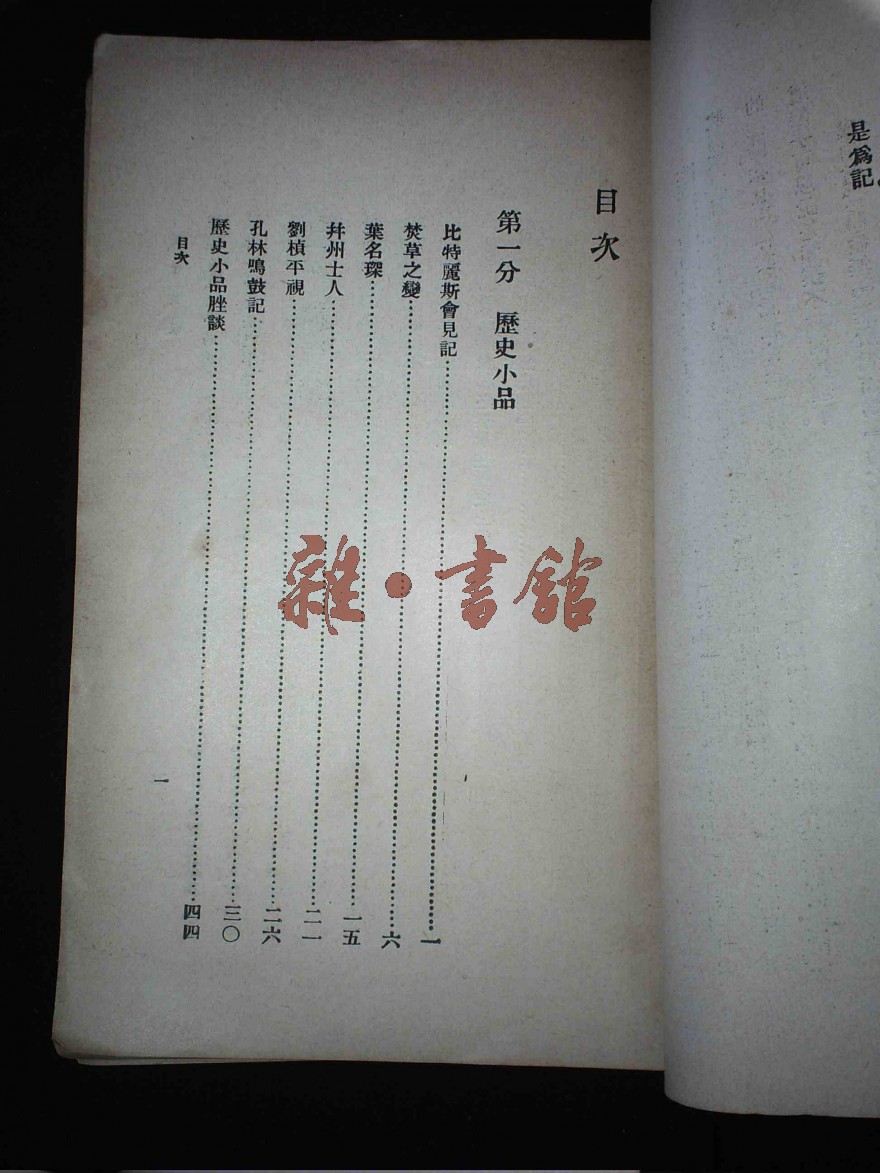 是爲記。
目次
第一分　歷史小品
比特麗斯會見記……一
焚草之變……六
葉名琛……一五
幷州士人……二一
劉楨平視……二六
孔林鳴鼓記……三〇
歷史小品脞談……四四
目次
一
雜·書館